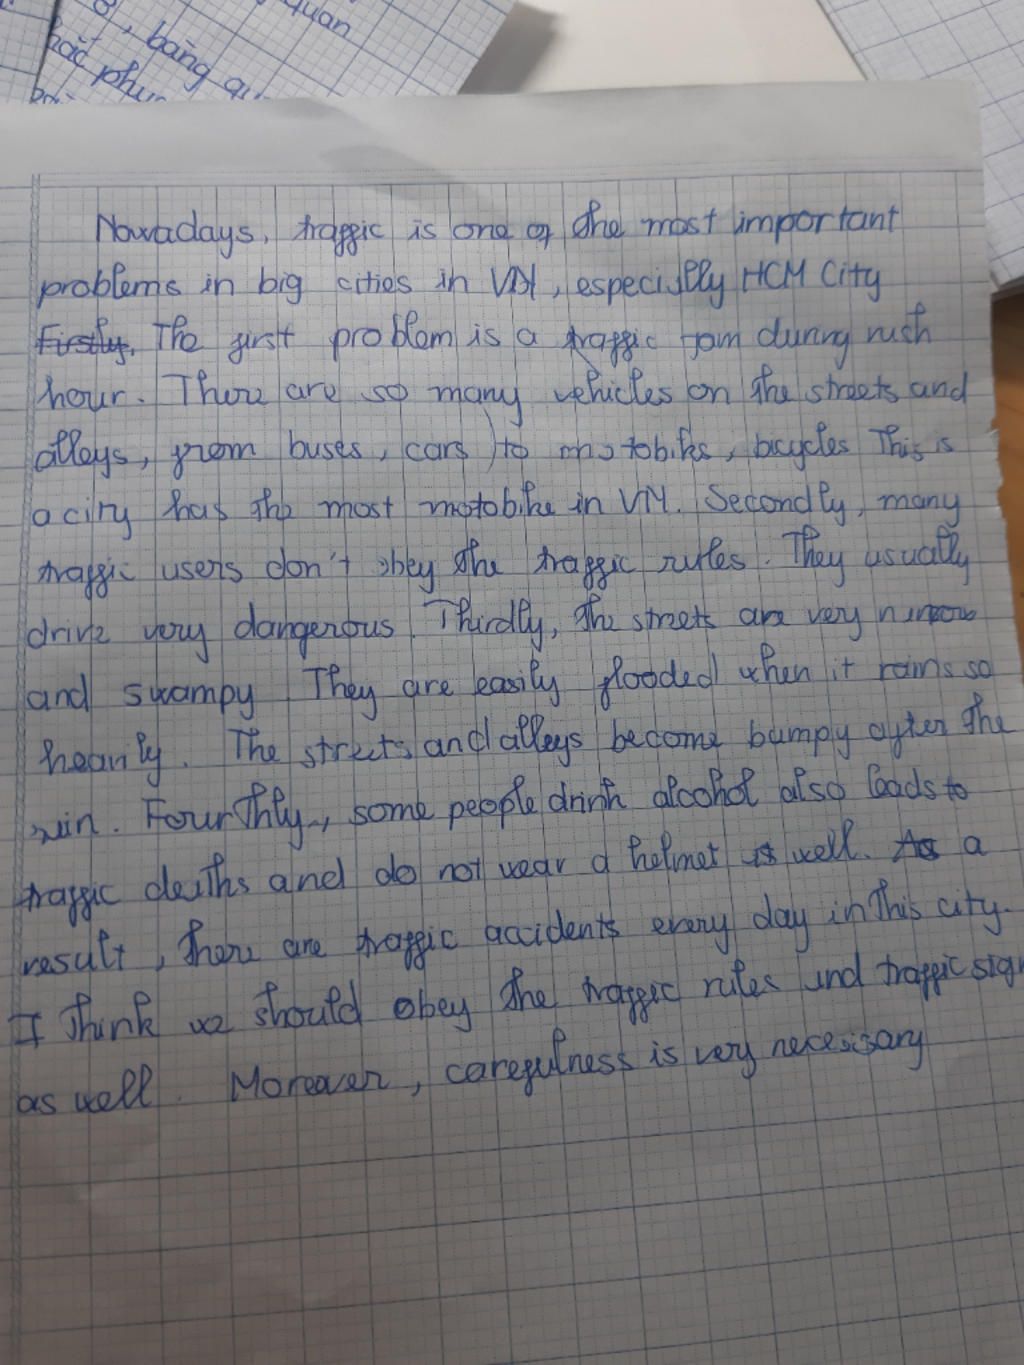 quan
, bằng qu
hắc phụ
Nowadays, traffic is one of the most important
problems in big cities in VN, especially HCM City
Firstly, The first problem is a traffic jam during rush
hour. There are so many vehicles on the streets and
alleys, from buses, cars to motobikes, bicycles This is
a city has the most motobike in VN. Secondly, many
traffic users don't obey the traffic rules. They usually
drive very dangerous. Thirdly, the streets are very
and swampy They are easily flooded when it rains so
heavily. The streets and alleys become bumpy after the
rain. Fourthly, some people drink alcohol also leads to
traffic deaths and do not wear a helmet as well. As a
result, there are traffic accidents every day in this city.
I think we should obey the traffic rules and traffic sign
as well. Moreover, carefulness is very necessary